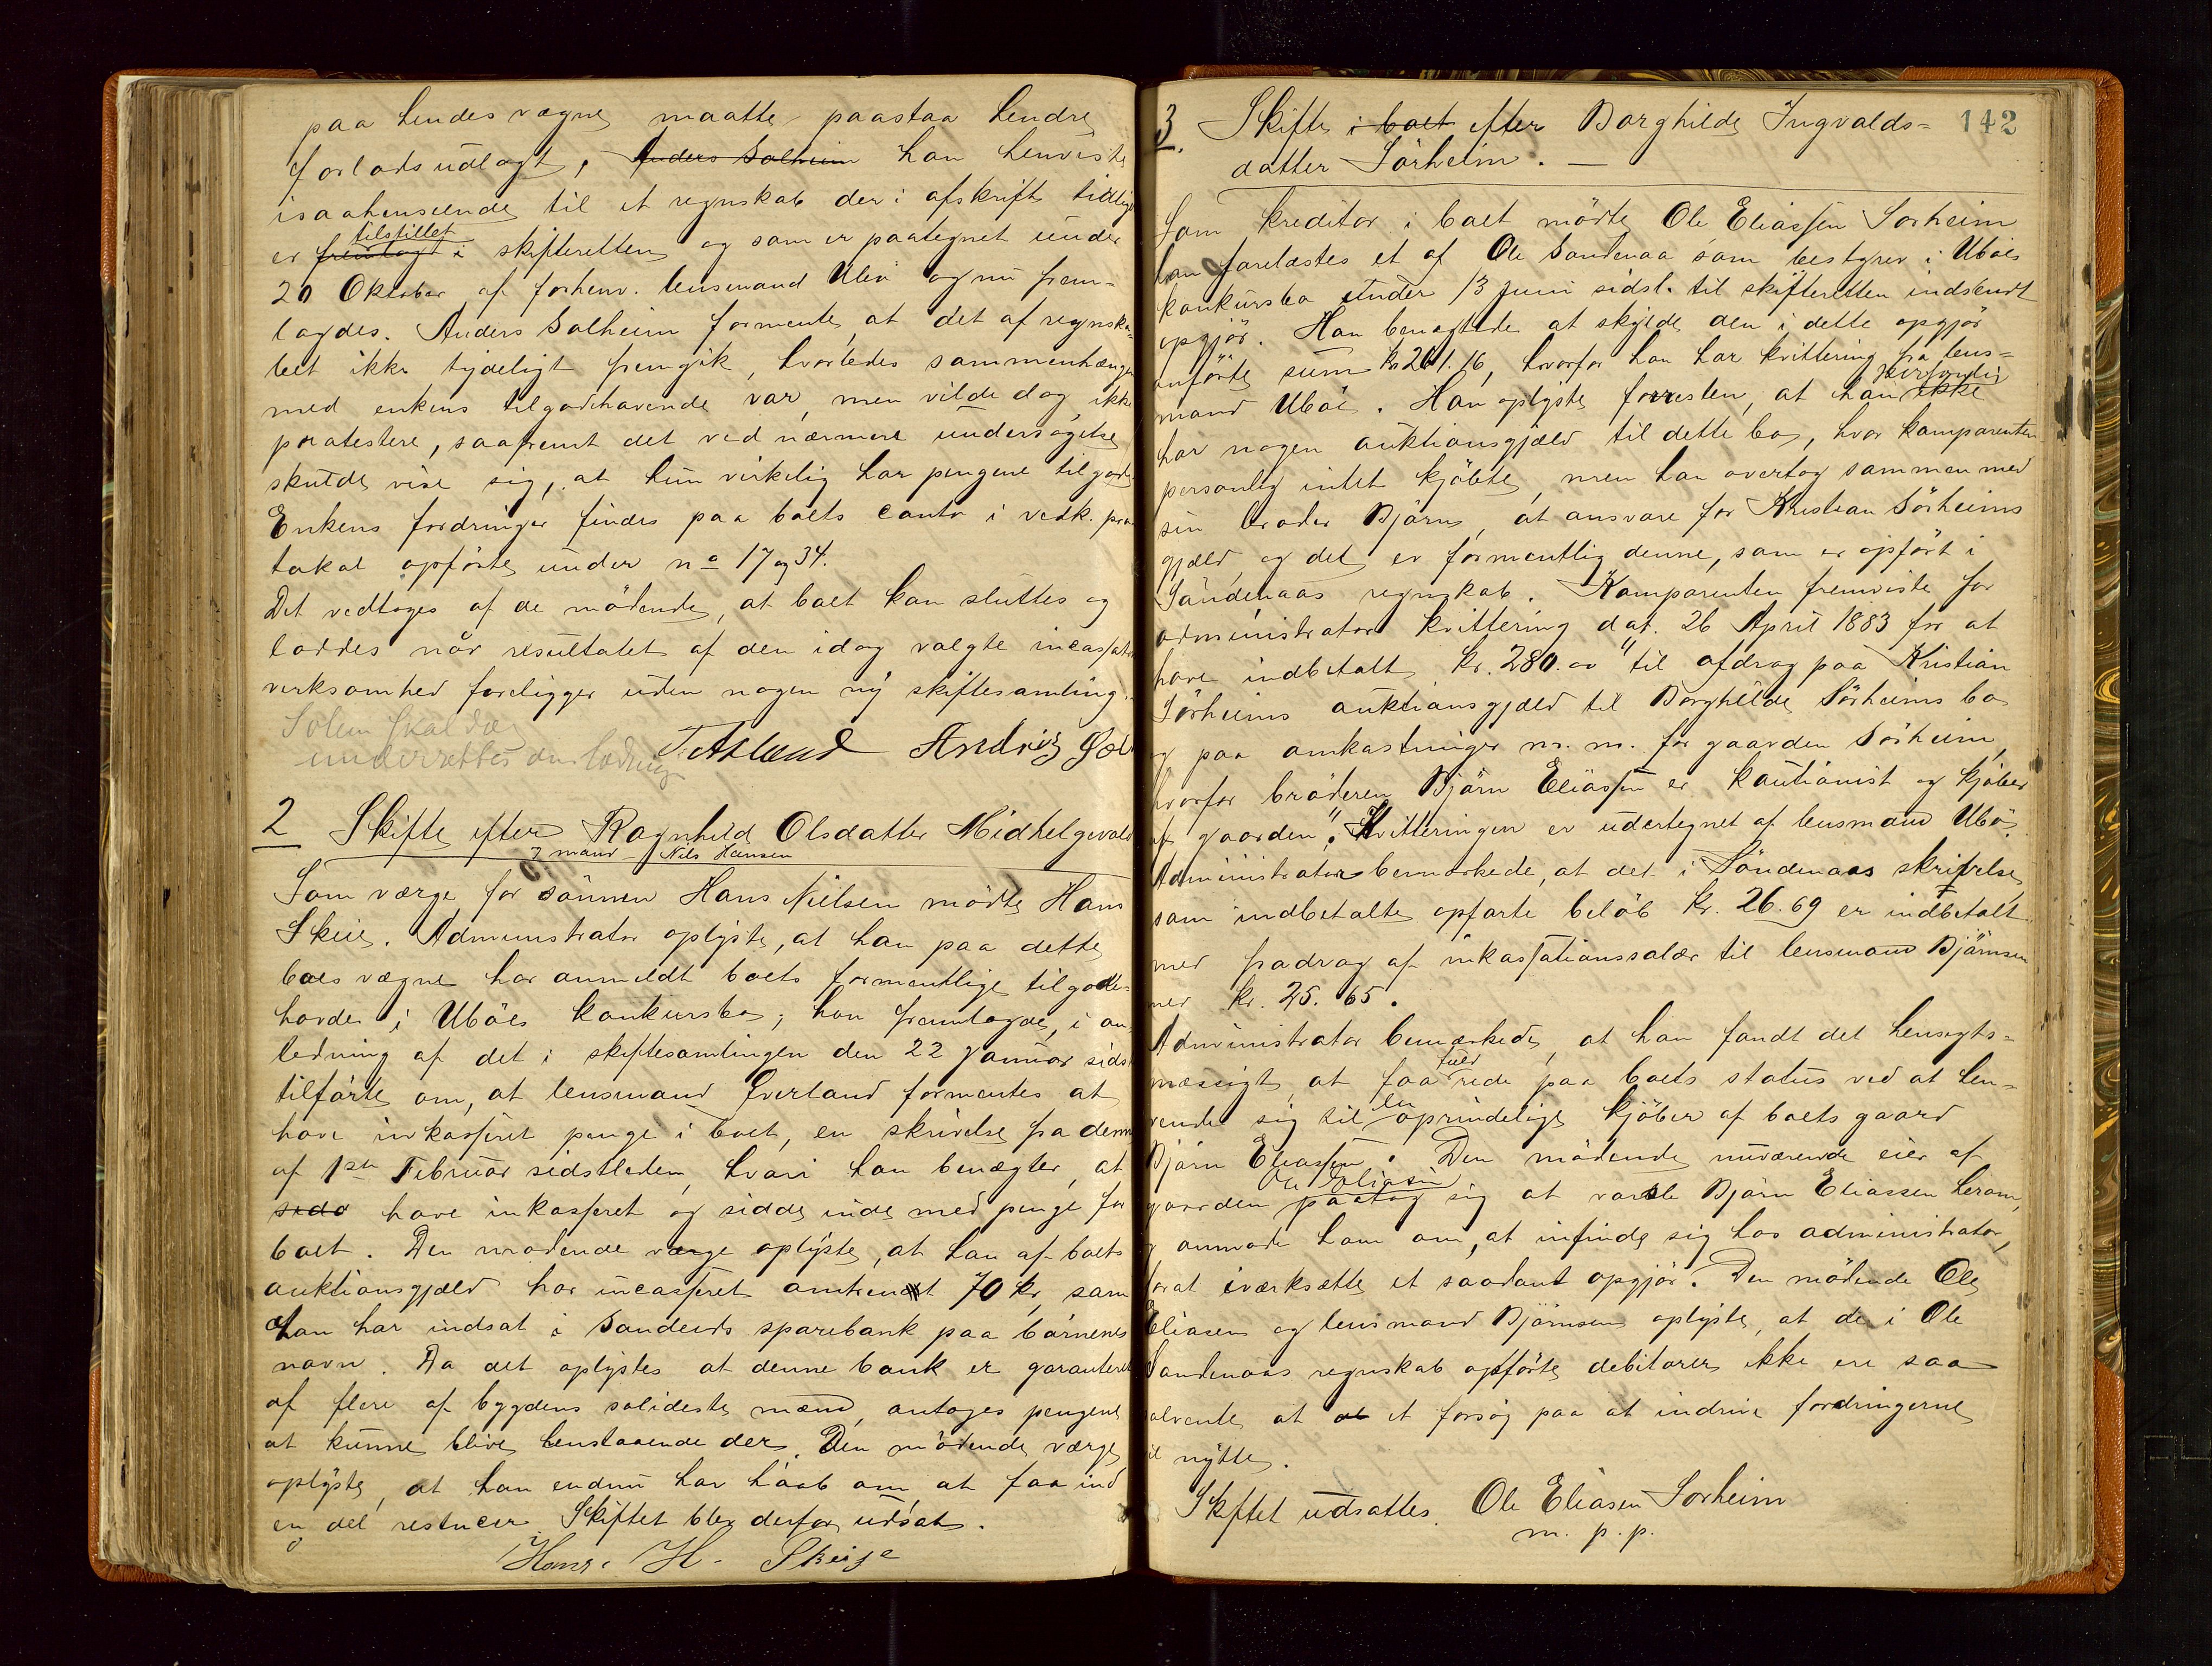 paa hendes vægne maatte paastaa hendre
forlods udlagt, Anders Solheim han henviste
isaahenseende til et regnskab der i afskrift tidlige
tilstillet
er fremlagt i skifteretten og som er paategnet under
20 Oktober af forhenv. lensmand Ubø og nu frem-
lagdes. Anders Solheim formente, at det af regnska-
bet ikke tydeligt fremgik, hvorledes sammenhængen
med enkens tilgodehavende var, men vilde dog ikke
protestere, saafremt det ved nærmere undersøgelse
skulde vise sig, at hun virkelig har pengene tilgode
Enkens fordringer findes paa boets conto i vedk. pro
tokol opførte under no 17 og 34.
Det vedtoges af de mødende, at boet kan sluttes og
loddes når resultatet af den idag valgte incassato
virksomhed foreligger uden nogen ny skiftesamling.
Solem skal da
underrettes om lodning
T. Asland Andrias Sol
2 Skifte efter Ragnhild Olsdatter Midthelgevold
J mand - Nils Hansen
Som værge for sønnen Hans Nielsen mødte Hans
Skeie. Administrator oplyste, at han paa dette
boes vægne har anmeldt boets formentlige tilgode-
havde i Ubøes konkursbo; han fremlagde, i an
ledning af det i skiftesamlingen den 22 Januar sidst
tilførte om, at lensmand Qverland formentes at
have inkasseret penge i boet, en skrivelse fra denne
af 1ste Februar sidstleden, hvori han benægter, at
sido have inkasseret og sidde inde med penge for
boet. Den mødende værge oplyste, at han af boets
auktionsgjæld har incasseret omtrent 70 kr, som
han har indsat i Sandeids sparebank paa børnenes
navn. Da det oplystes at denne bank er garanteret
af flere af bygdens solideste mænd, antoges pengene
at kunne blive henstaaende der. Den mødende værge
oplyste, at han endnu har håab om at faa ind
en del restancer. Skiftet blev derfor udsat.
Hans. H. Skeije
142
3. Skifte i boet efter Borghilde Ingvalds-
datter Sörheim. —
Som kreditor i boet mødte Ole Eliassen Sørheim
han forelæstes et af Ole Søndenaa som bestyrer i Ubøes
konkursbo under 13 Juni sidstl. til skifteretten indsendt
opgjör. Han benægtede at skylde den i dette opgjör
anførte sum kr 261.16, hvorfor han har kvittering fra lens-
personlig
mand Ubøe. Han oplyste forresten, at han ikke
har nogen auktionsgjæld til dette bo, hvor komparenten
personlig intet kjøbte, men han overtog sammen med
sin broder Bjørn, at ansvare for Kristian Sörheims
gjæld, og det er formentlig denne, som er opført i
Søndenaas regnskab. Komparenten fremviste for
administrator kvittering dat. 26 April 1883 for at
have indbetalt kr. 280.00 "til afdrag paa Kristian
Sørheims auktionsgjæld til Borghilde Sörheims bo
og paa omkostninger m. m. for gaarden Sörheim,
hvorfor broderen Bjørn Eliassen er kautionist og kjøber
af gaarden". Kvitteringen er udertegnet af lensmand Ubø.
Administrator bemærkede, at det i Søndenaas skrivelse
som indbetalte opførte beløb kr. 26.69 er indbetalt
med fradrag af inkassationssalær til lensmand Bjørnsen
med kr. 25.65.
Administrator bemærkede, at han fandt det hensigts-
fuld
mæssigt, at faa rede paa boets status ved at hen-
den
vende sig til oprindelige kjøber af boets gaard
Bjørn Eliassen. Den mødende nuværende eier af
Ole Eliasen
gaarden paatog sig at varsle Bjørn Eliassen herom,
og anmode ham om, at infinde sig hos administrator,
forat iværksætte et saadant opgjør. Den mødende Ole
Eliasen og lensmand Bjørnsen oplyste, at de i Ole
Søndenaas regnskab opførte debitorer ikke ere saa
solvente, at et forsøg paa at indrive fordringerne
til nytte.
Skiftet udsattes. Ole Eliasen Sørheim
m. p. p.